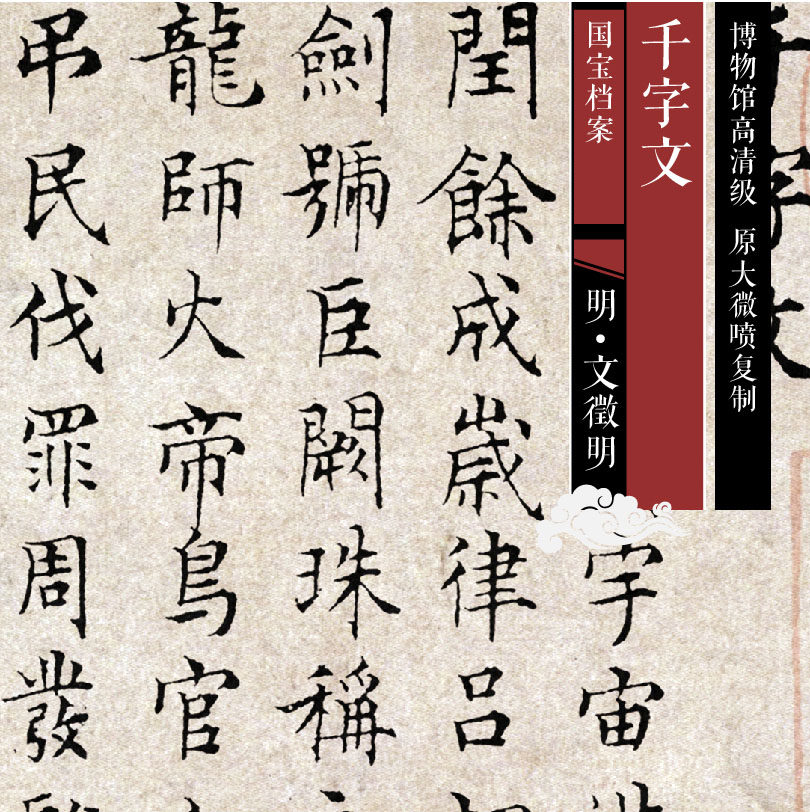 博物馆高清级 原大微喷复制
千字文
国宝档案
明·文徵明
字文
宇宙
閏餘成歲律呂
劍號巨闕珠稱
龍師火帝鳥官
吊民伐罪周發